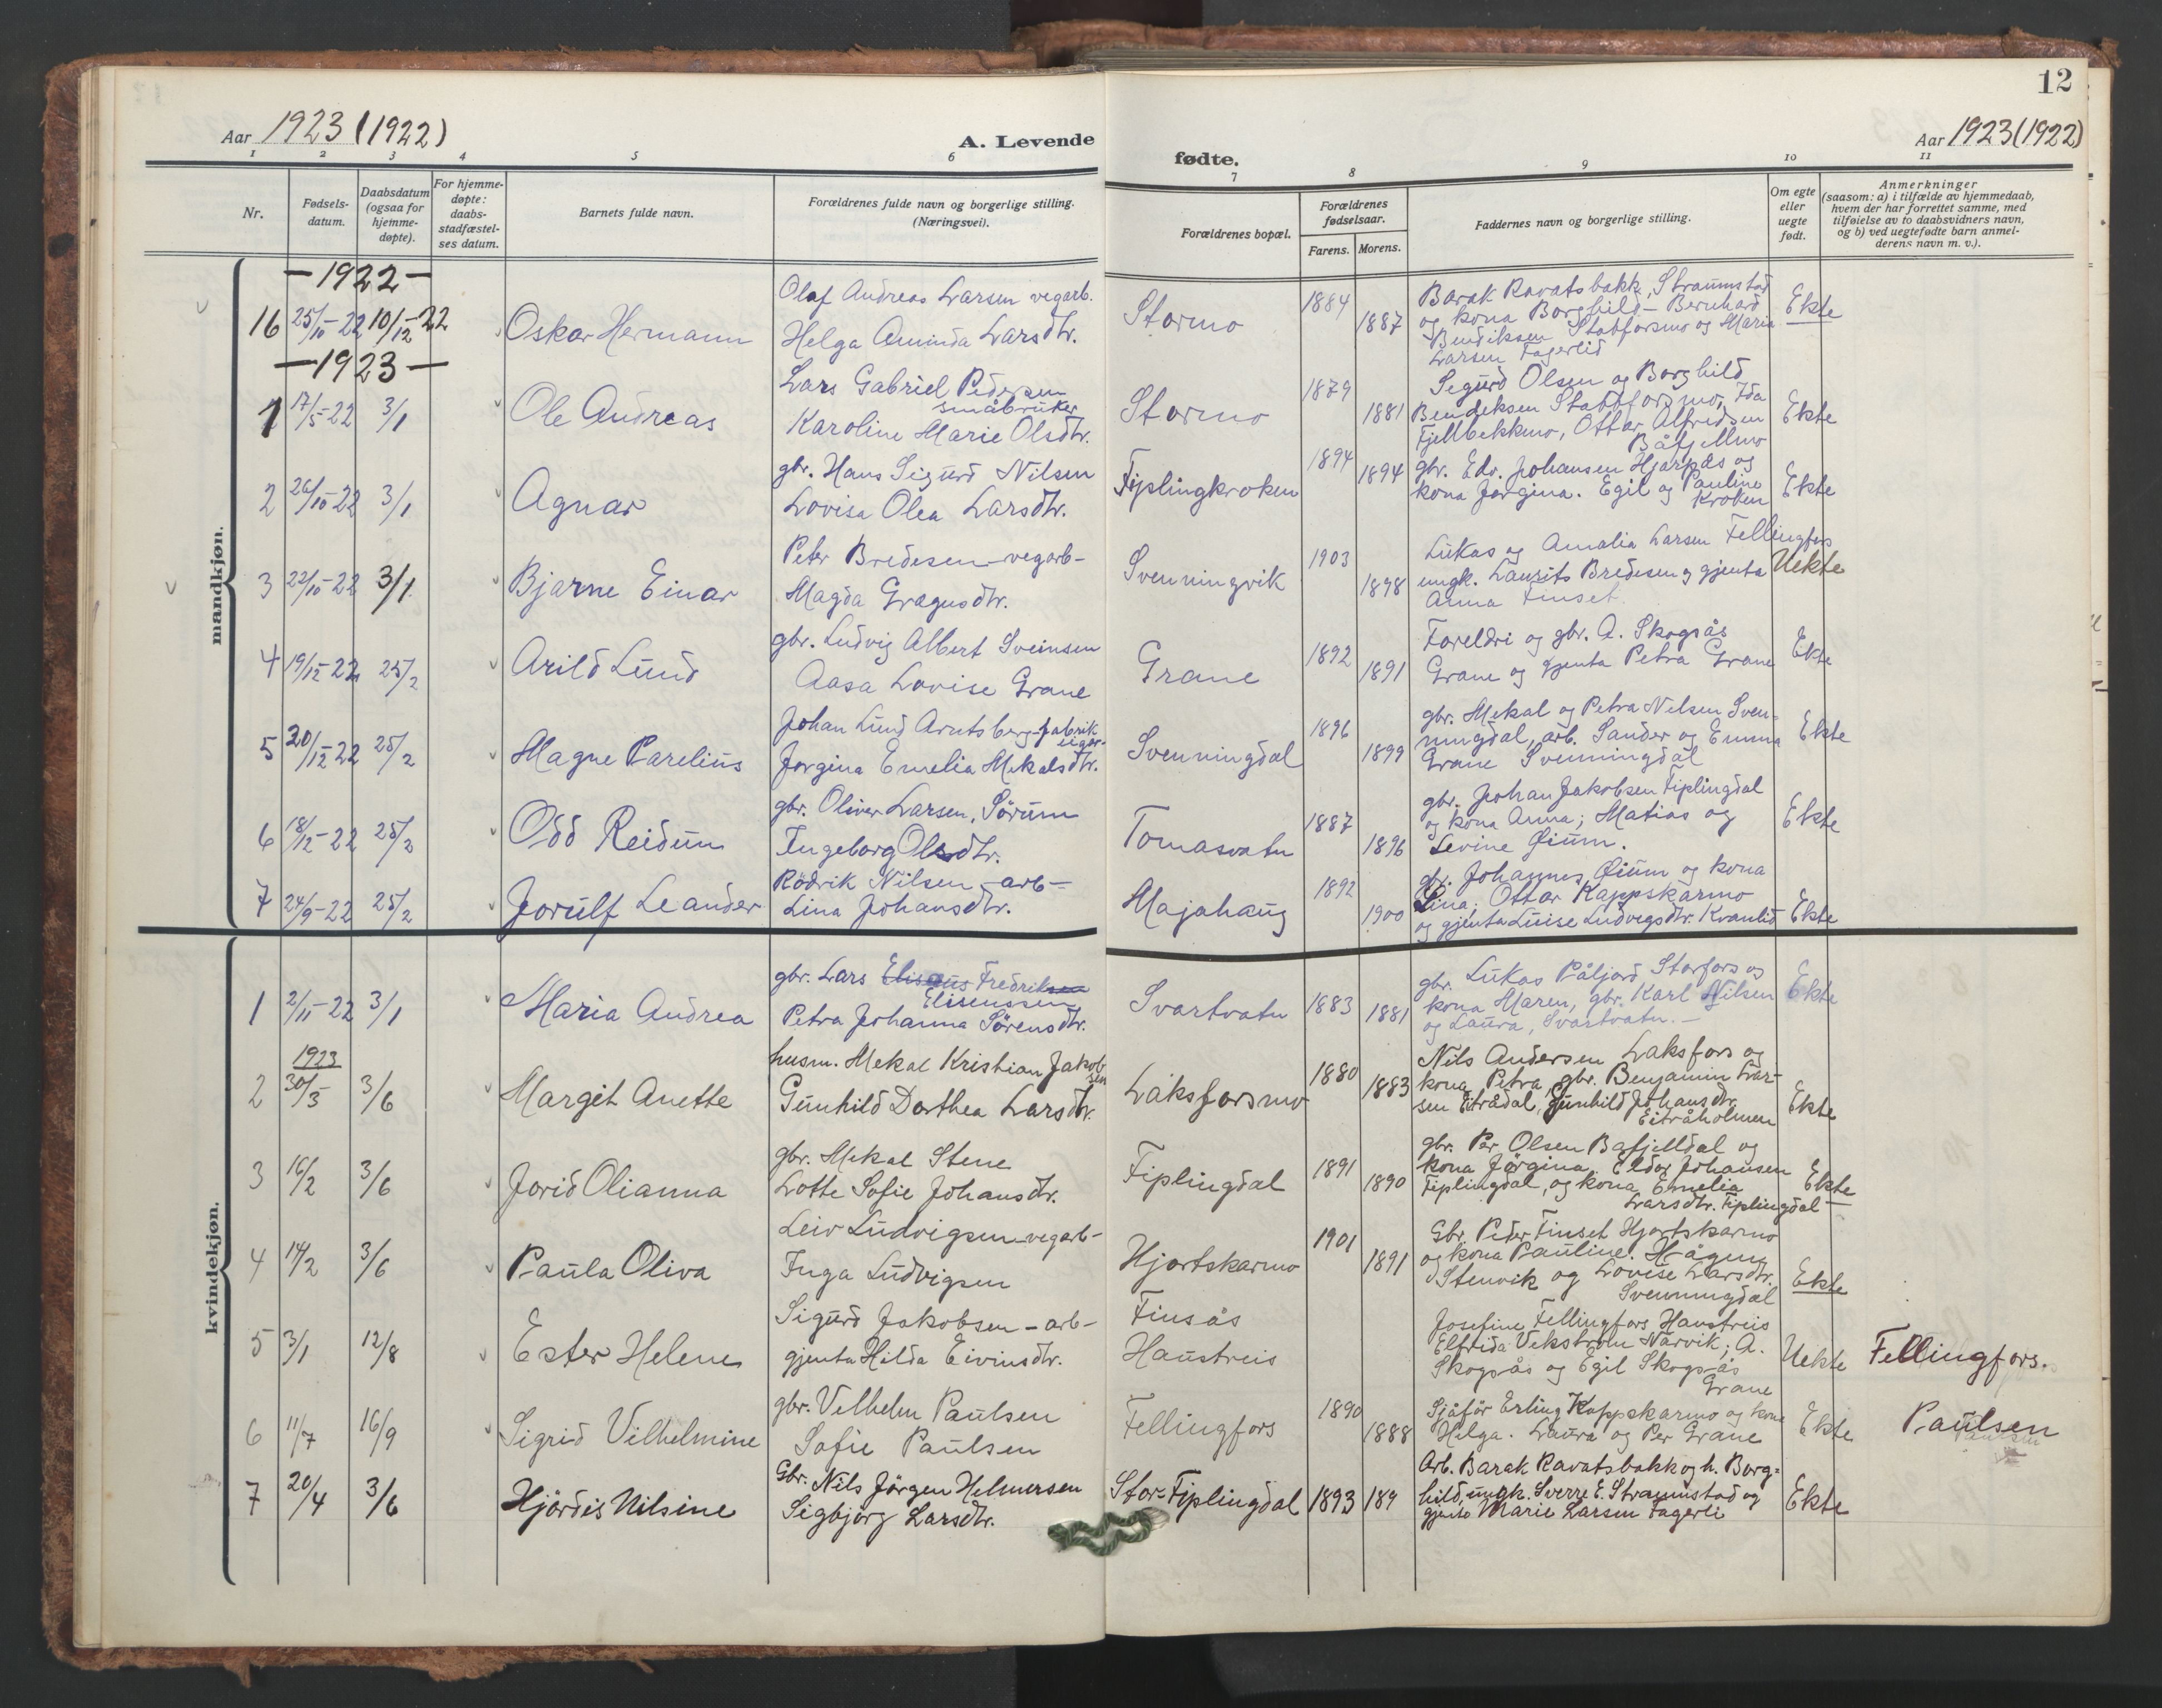 12
Aar 1923 (1922)
A. Levende
fødte.
Aar 1923 (1922)
1 2 3 4 5 6 7 8 9 10 11
Nr.
Fødsels-
datum.
Daabsdatum
(ogsaa for
hjemme-
døpte).
For hjemme-
døpte:
daabs-
stadfæstel-
ses datum.
Barnets fulde navn.
Forældrenes fulde navn og borgerlige stilling.
(Næringsvei).
Forældrenes bopæl.
Forældrenes
fødselsaar.
Farens. Morens.
Faddernes navn og borgerlige stilling.
Om egte
eller
uegte
født.
Anmerkninger
(saasom: a) i tilfælde av hjemmedaab,
hvem der har forrettet samme, med
tilføielse av to daabsvidners navn,
og b) ved uegtefødte barn anmel-
derens navn m. v.).
mandkjøn.
— 1922 —
16 25/10-22 10/12-22 Oskar Hermann
Olaf Andreas Larsen vegarb.
Helga Aminda Larsdtr.
Stormo 1884 1887
Barak Ravatsbakk, Straumstad
og kona Borghild — Bernhard
Bendiksen Stabforsmo og Maria
Larsen Fagerlid
Ekte
— 1923 —
1 17/5-22 3/1 Ole Andreas
Lars Gabriel Pedersen
småbruker
Karoline Marie Olsdtr.
Stormo 1879 1881
Segurd Olsen og Borghild
Bendeksen Stabbforsmo, Ida
Fjellbekkmo, Ottar Alfredsen
Båfjellmo
Ekte
2 26/10-22 3/1 Agnar
gbr. Hans Sigurd Nilsen
Lovisa Olea Larsdtr.
Fiplingkroken 1894 1894
gbr. Edv. Johansen Hjarpås og
kona Jørgina. Egil og Pauline
Kroken
Ekte
3 22/10-22 3/1 Bjarne Einar
Peter Bredesen — vegarb —
Magda Gragusdtr.
Svenningvik 1903 1898
Lukas og Amalia Larsen Fellingfors
ungk. Laurits Bredesen og gjenta
Anna Finset
Uekte
4 19/12-22 25/2 Arild Lund
gbr. Ludvig Albert Sveinsen
Aasa Lovise Grane
Grane 1892 1891
Foreldri og gbr. A. Skogsås
Grane og gjenta Petra Grane
Ekte
5 20/12-22 25/2 Magne Parelius
Johan Lund Arntsberg — fabrik
eigar.
Jørgina Emelia Mekalsdtr.
Svenningdal 1896 1899
gbr. Mekal og Petra Nilsen Sven-
ningdal, arb. Sander og Emma
Grane Svenningdal
Ekte
6 18/12-22 25/2 Odd Reidun
gbr. Oliver Larsen, Sørum
Ingeborg Olsdtr.
Tomasvatn 1887 1896
gbr. Johan Jakobsen Fiplingdal
og kona Anna; Matias og
Levine Øium.
Ekte
7 24/9-22 25/2 Jorulf Leander
Rødrik Nilsen — arb —
Lina Johansdtr.
Majahaug 1892 1900
gbr. Johannes Øium og kona
Lina, Ottar Kappskarmo
og gjenta Luise Ludvegsdtr. Kvanlid
Ekte
kvindekjøn.
1 2/11-22 3/1 Maria Andrea
gbr. Lars Elisæus Fredriksen
Elisenssen
Petra Johanna Sørensdtr.
Svartvatn 1883 1881
gbr. Lukas Påljord Storfors og
kona Maren, gbr. Karl Nilsen
og Laura, Svartvatn. —
Ekte
1923
2 30/3 3/6 Margit Anette
husm. Mekal Kristian Jakob-
sen
Gunhild Dorthea Larsdtr.
Laksforsmo 1880 1883
Nils Andersen Laksfors og
kona Petra, gbr. Benjamin Lar-
sen Eitrådal, Gunhild Johansdtr.
Eitråholmen
Ekte
3 16/2 3/6 Jorid Olianna
gbr. Mekal Stene
Lotte Sofie Johansdtr.
Fiplingdal 1891 1890
gbr. Per Olsen Bafjelldal og
kona Jørgina. Eldor Johansen
Fiplingdal, og kona Emelia
Larsdtr. Fiplingdal —
Ekte
4 14/2 3/6 Paula Oliva
Leiv Ludvigsen — vegarb —
Inga Ludvigsen
Hjortskarmo 1901 1891
Gbr. Peter Finset Hjortskarmo
og kona Pauline. Hågen
Stenvik og Lovise Larsdtr.
Svenningdal
Ekte
5 3/1 12/8 Ester Helene
Sigurd Jakobsen — arb —
gjenta Hilda Eivinsdtr.
Finsås
Haustreis
Josefine Fellingfors Haustreis
Elfrida Vekstrøm Narvik, A.
Skogsås og Egil Skogsås
Grane
Uekte Fellingfors.
6 11/7 16/9 Sigrid Vilhelmine
gbr. Velhelm Paulsen
Sofie Paulsen
Fellingfors 1890 1888
Sjåfør Erling Kappskarmo og kona
Helga. Laura og Per Grane
Ekte Paulsen
7 20/4 3/6 Hjørdis Nilsine
Gbr. Nils Jørgen Helmersen
Sigbjørg Larsdtr.
Stor-Fiplingdal 1893 189
Arb. Barak Ravatsbakk og h. Borg-
hild, ungk. Sverre E. Straumstad og
gjenta Marie Larsen Fagerli
Ekte